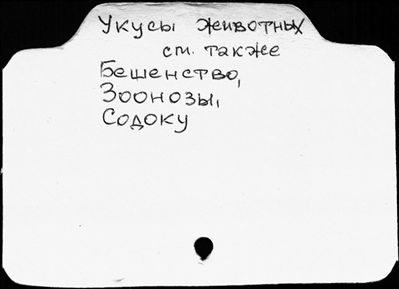 Укусы животных
см. также
Бешенство,
Зоонозы,
Содоку